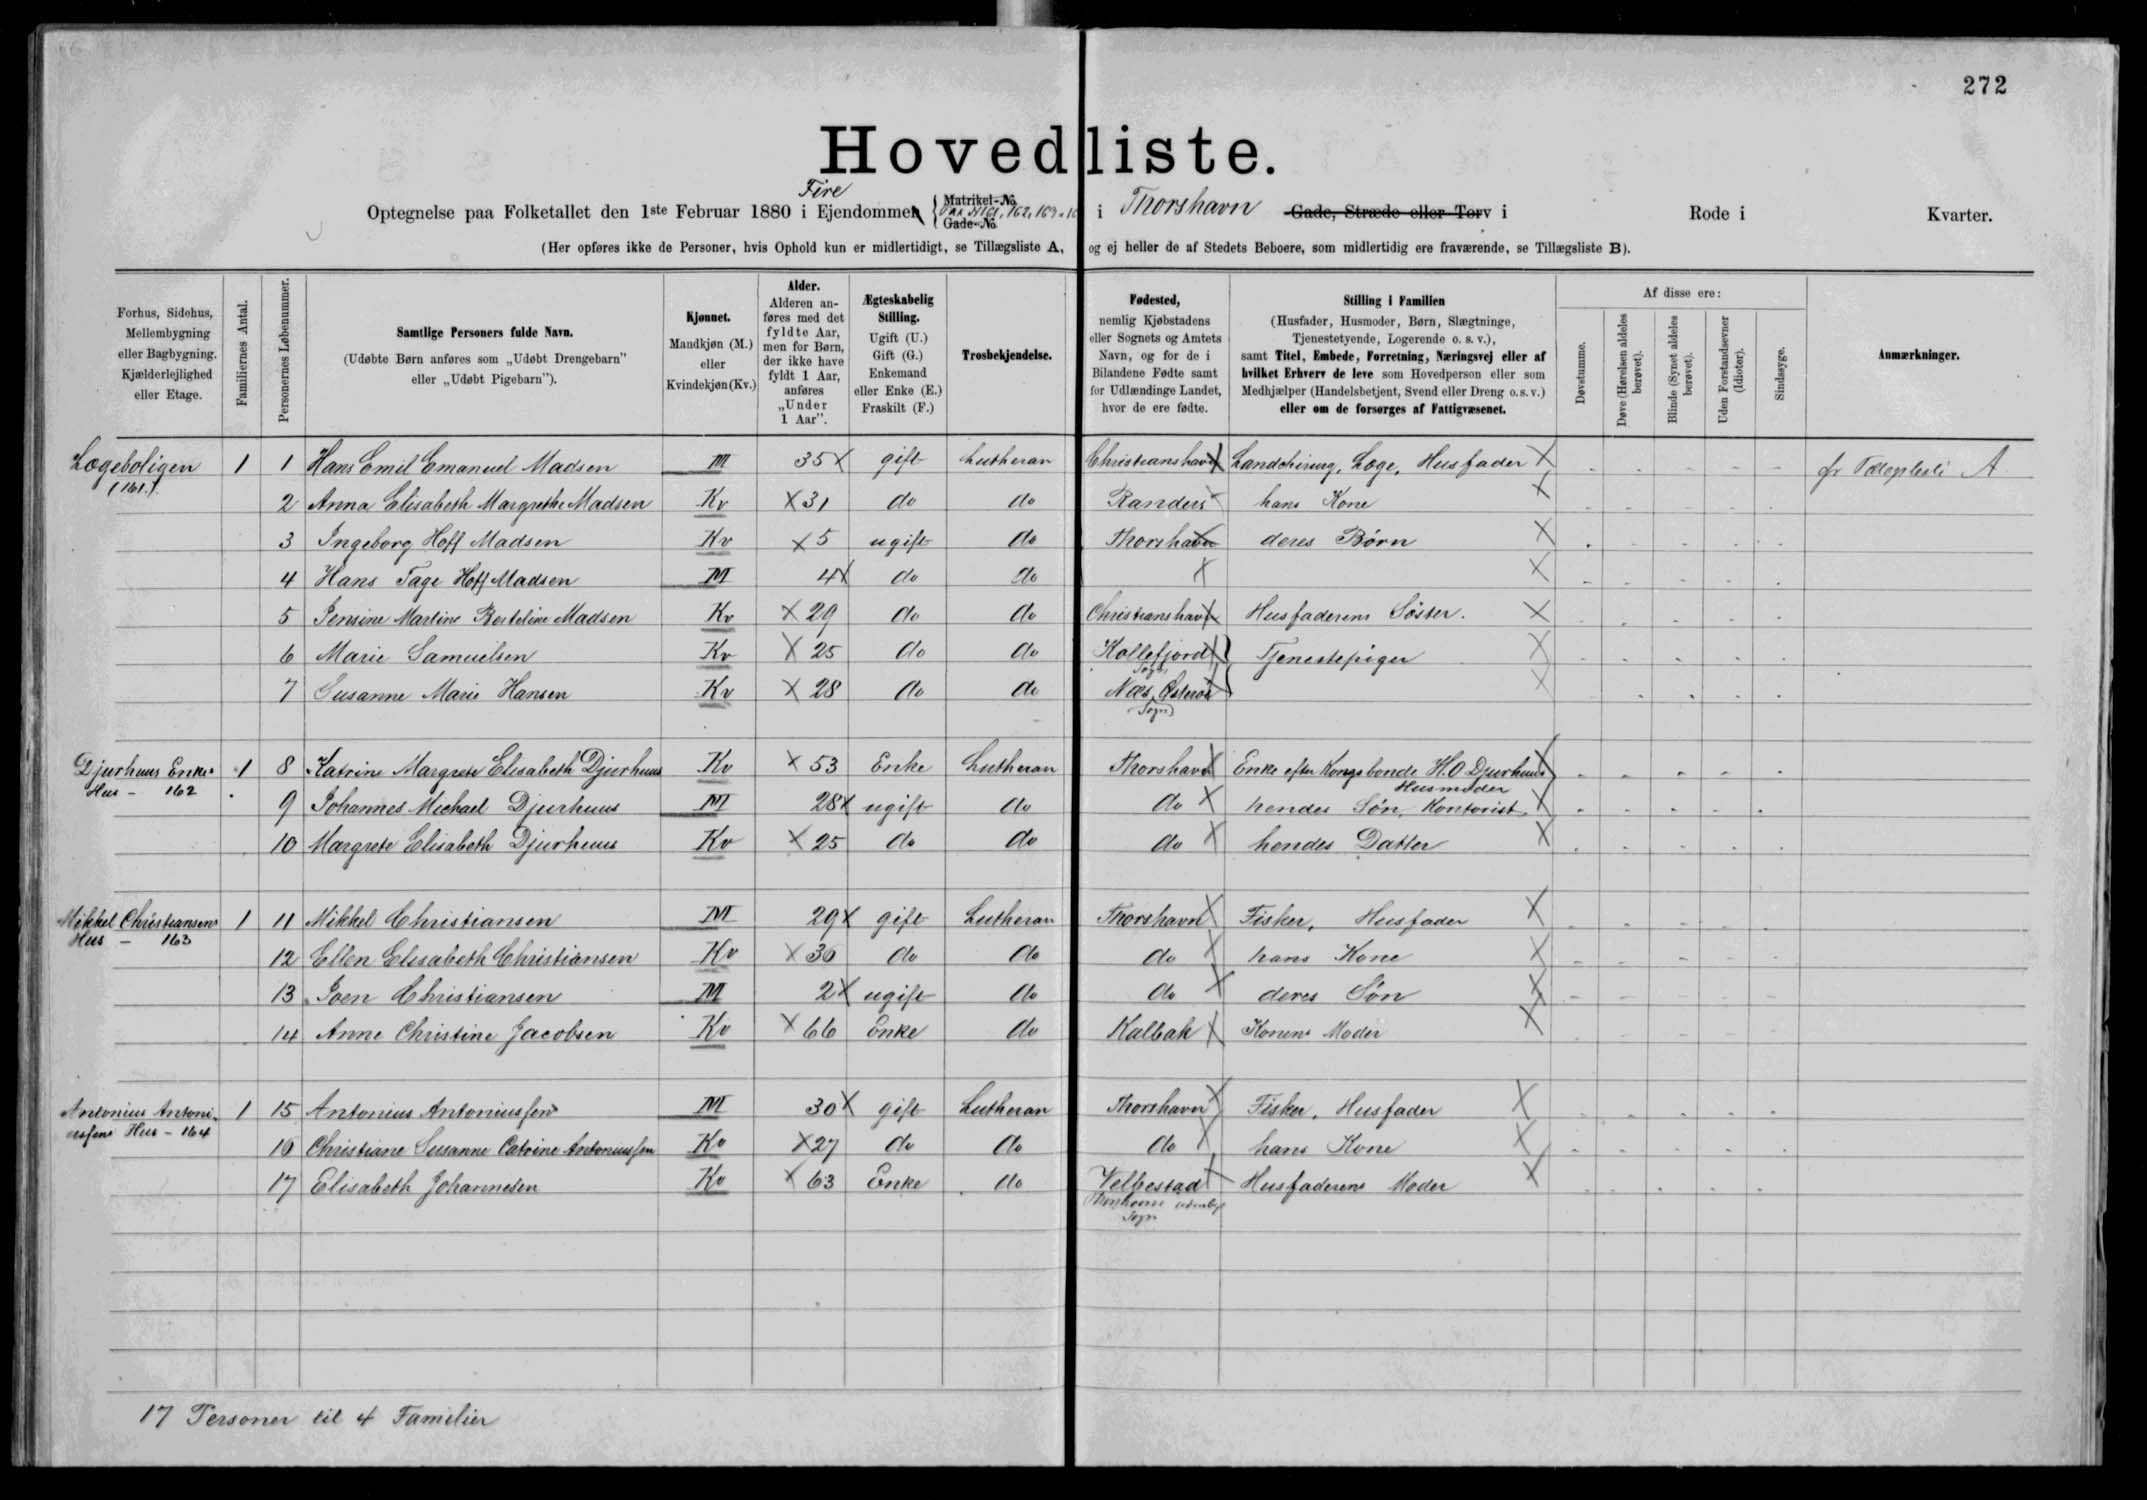 272
Hovedliste.
Fire
Optegnelse paa Folketallet den 1ste Februar 1880 i Ejendommen { Matrikel-No. 161, 162, 163 Gade-No. i Thorshavn Gade, Stræde eller Torv i Rode i Kvarter.
(Her opføres ikke de Personer, hvis Ophold kun er midlertidigt, se Tillægsliste A, og ej heller de af Stedets Beboere, som midlertidig ere fraværende, se Tillægsliste B).
Forhus, Sidehus, Mellembygning eller Bagbygning. Kjælderlejlighed eller Etage.
Familiernes Antal.
Personernes Løbenummer.
Samtlige Personers fulde Navn.
(Udøbte Børn anføres som „Udøbt Drengebarn" eller „Udøbt Pigebarn").
Kjønnet.
Mandkjøn (M.) eller Kvindekjøn (Kv.)
Alder.
Alderen anføres med det fyldte Aar, men for Børn, der ikke have fyldt 1 Aar, anføres „Under 1 Aar".
Ægteskabelig Stilling.
Ugift (U.) Gift (G.) Enkemand eller Enke (E.) Fraskilt (F.)
Trosbekjendelse.
Fødested,
nemlig Kjøbstadens eller Sognets og Amtets Navn, og for de i Bilandene Fødte samt for Udlændinge Landet, hvor de ere fødte.
Stilling i Familien
(Husfader, Husmoder, Børn, Slægtninge, Tjenestetyende, Logerende o. s. v.), samt Titel, Embede, Forretning, Næringsvej eller af hvilket Erhverv de leve som Hovedperson eller som Medhjælper (Handelsbetjent, Svend eller Dreng o. s. v.) eller om de forsørges af Fattigvæsenet.
Af disse ere:
Døvstumme.
Døve (Hørelsen aldeles berøvet).
Blinde (Synet aldeles berøvet).
Uden Forstandsevner (Idioter).
Sindssyge.
Anmærkninger.
Lægeboligen 1 1 Hans Emil Emanuel Madsen M 35 X gift Lutheran Christianshavn Landchirurg, Læge, Husfader X A
(161.) 2 Anna Elisabeth Margrethe Madsen Kv X 31 do do Randers hans Kone X
3 Ingeborg Hoff Madsen Kv X 5 ugift do Thorshavn deres Børn X
4 Hans Tage Hoff Madsen M 4 X do do X X
5 Jensine Martine Berteline Madsen Kv X 29 do do Christianshavn Husfaderens Søster. X
6 Marie Samuelsen Kv X 25 do do Kollefjord Sogn } Tjenestepiger X
7 Susanne Marie Hansen Kv X 28 do do Næs Østerø X
Sogn
Djurhuus Enkes 1 8 Katrine Margrete Elisabeth Djurhuus Kv X 53 Enke Lutheran Thorshavn X Enke efter Kongsbonde H.O Djurhuus X
Hus - 162 Husmoder
9 Johannes Michael Djurhuus M 28 X ugift do do X hendes Søn, Kontorist X
10 Margrete Elisabeth Djurhuus Kv X 25 do do do X hendes Datter X
Mikkel Christiansens 1 11 Mikkel Christiansen M 29 X gift Lutheran Thorshavn X Fisker, Husfader X
Hus - 163
12 Ellen Elisabeth Christiansen Kv X 30 do do do X hans Kone X
13 Joen Christiansen M 2 X ugift do do X deres Søn X
14 Anne Christine Jacobsen Kv X 66 Enke do Kalbak X Konens Moder X
Antonius Antoni- 1 15 Antonius Antoniussen M 30 X gift Lutheran Thorshavn X Fisker, Husfader X
ussens Hus - 164
16 Christiane Susanne Catrine Antoniussen Kv X 27 do do do X hans Kone X
17 Elisabeth Johannesen Kv X 63 Enke do Velbestad X Husfaderens Moder X
Sogn
17 Personer til 4 Familier